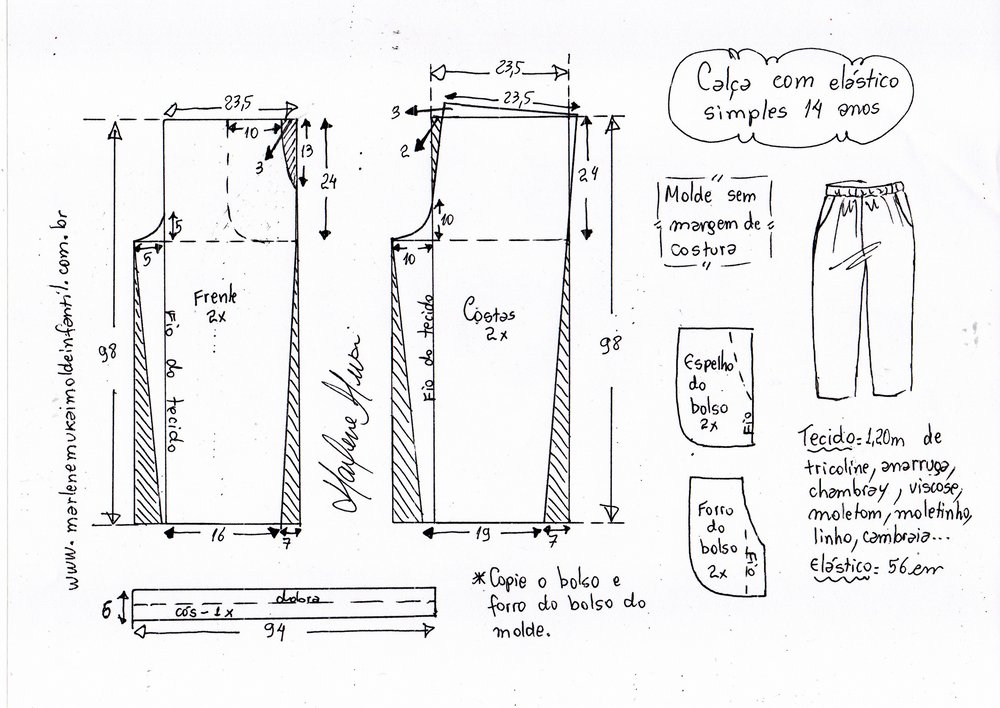 www.marlenemukaimoldeinfantil.com.br
23,5
10
3
13
24
5
5
Frente
2x
Fio do tecido
98
16
7
23,5
23,5
3
2
24
10
10
Costas
2x
Fio do tecido
98
19
7
Calça com elástico
simples 14 anos
Molde sem
margem de
costura
Espelho
do
bolso
2x
Fio
Forro
do
bolso
2x
Fio
Tecido=1,20m de
tricoline, anarruga,
chambray, viscose,
moletom, moletinho,
linho, cambraia...
Elástico= 56cm
6
dobra
cós-1x
94
*Copie o bolso e
forro do bolso do
molde.